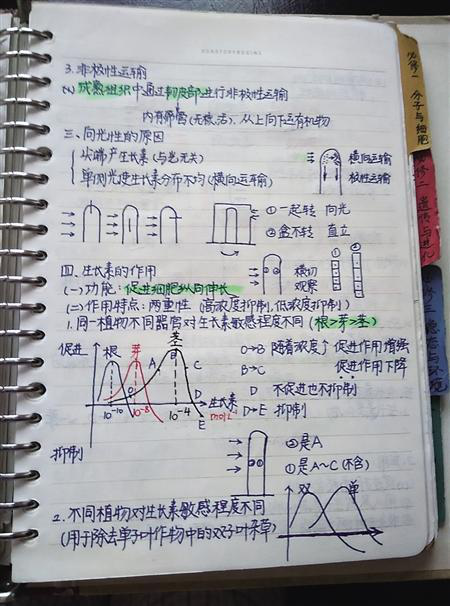 3.非极性运输
(2)成熟组织中通过韧皮部进行非极性运输
内有筛管(无核,活).从上向下运有机物
三、向光性的原因
尖端产生长素(与光无关)
单侧光使生长素分布不均(横向运输)
横向运输
极性运输
①一起转 向光
②盒不转 直立
四.生长素的作用
(一)功能:促进细胞纵向伸长
横切
观察
① ②
(二)作用特点:两重性 (高浓度抑制,低浓度抑制)
1.同一植物不同器官对生长素敏感程度不同(根>芽>茎)
促进
根 芽 茎
A B C
O D E
10-10 10-8 10-4
生长素
mol/L
抑制
O→B 随着浓度↑促进作用增强
B→C 促进作用下降
D 不促进也不抑制
D→E 抑制
②是A
①是A~C(不含)
2.不同植物对生长素敏感程度不同
(用于除去单子叶作物中的双子叶杂草)
双 单
必修一 分子与细胞
必修二 遗传与进化